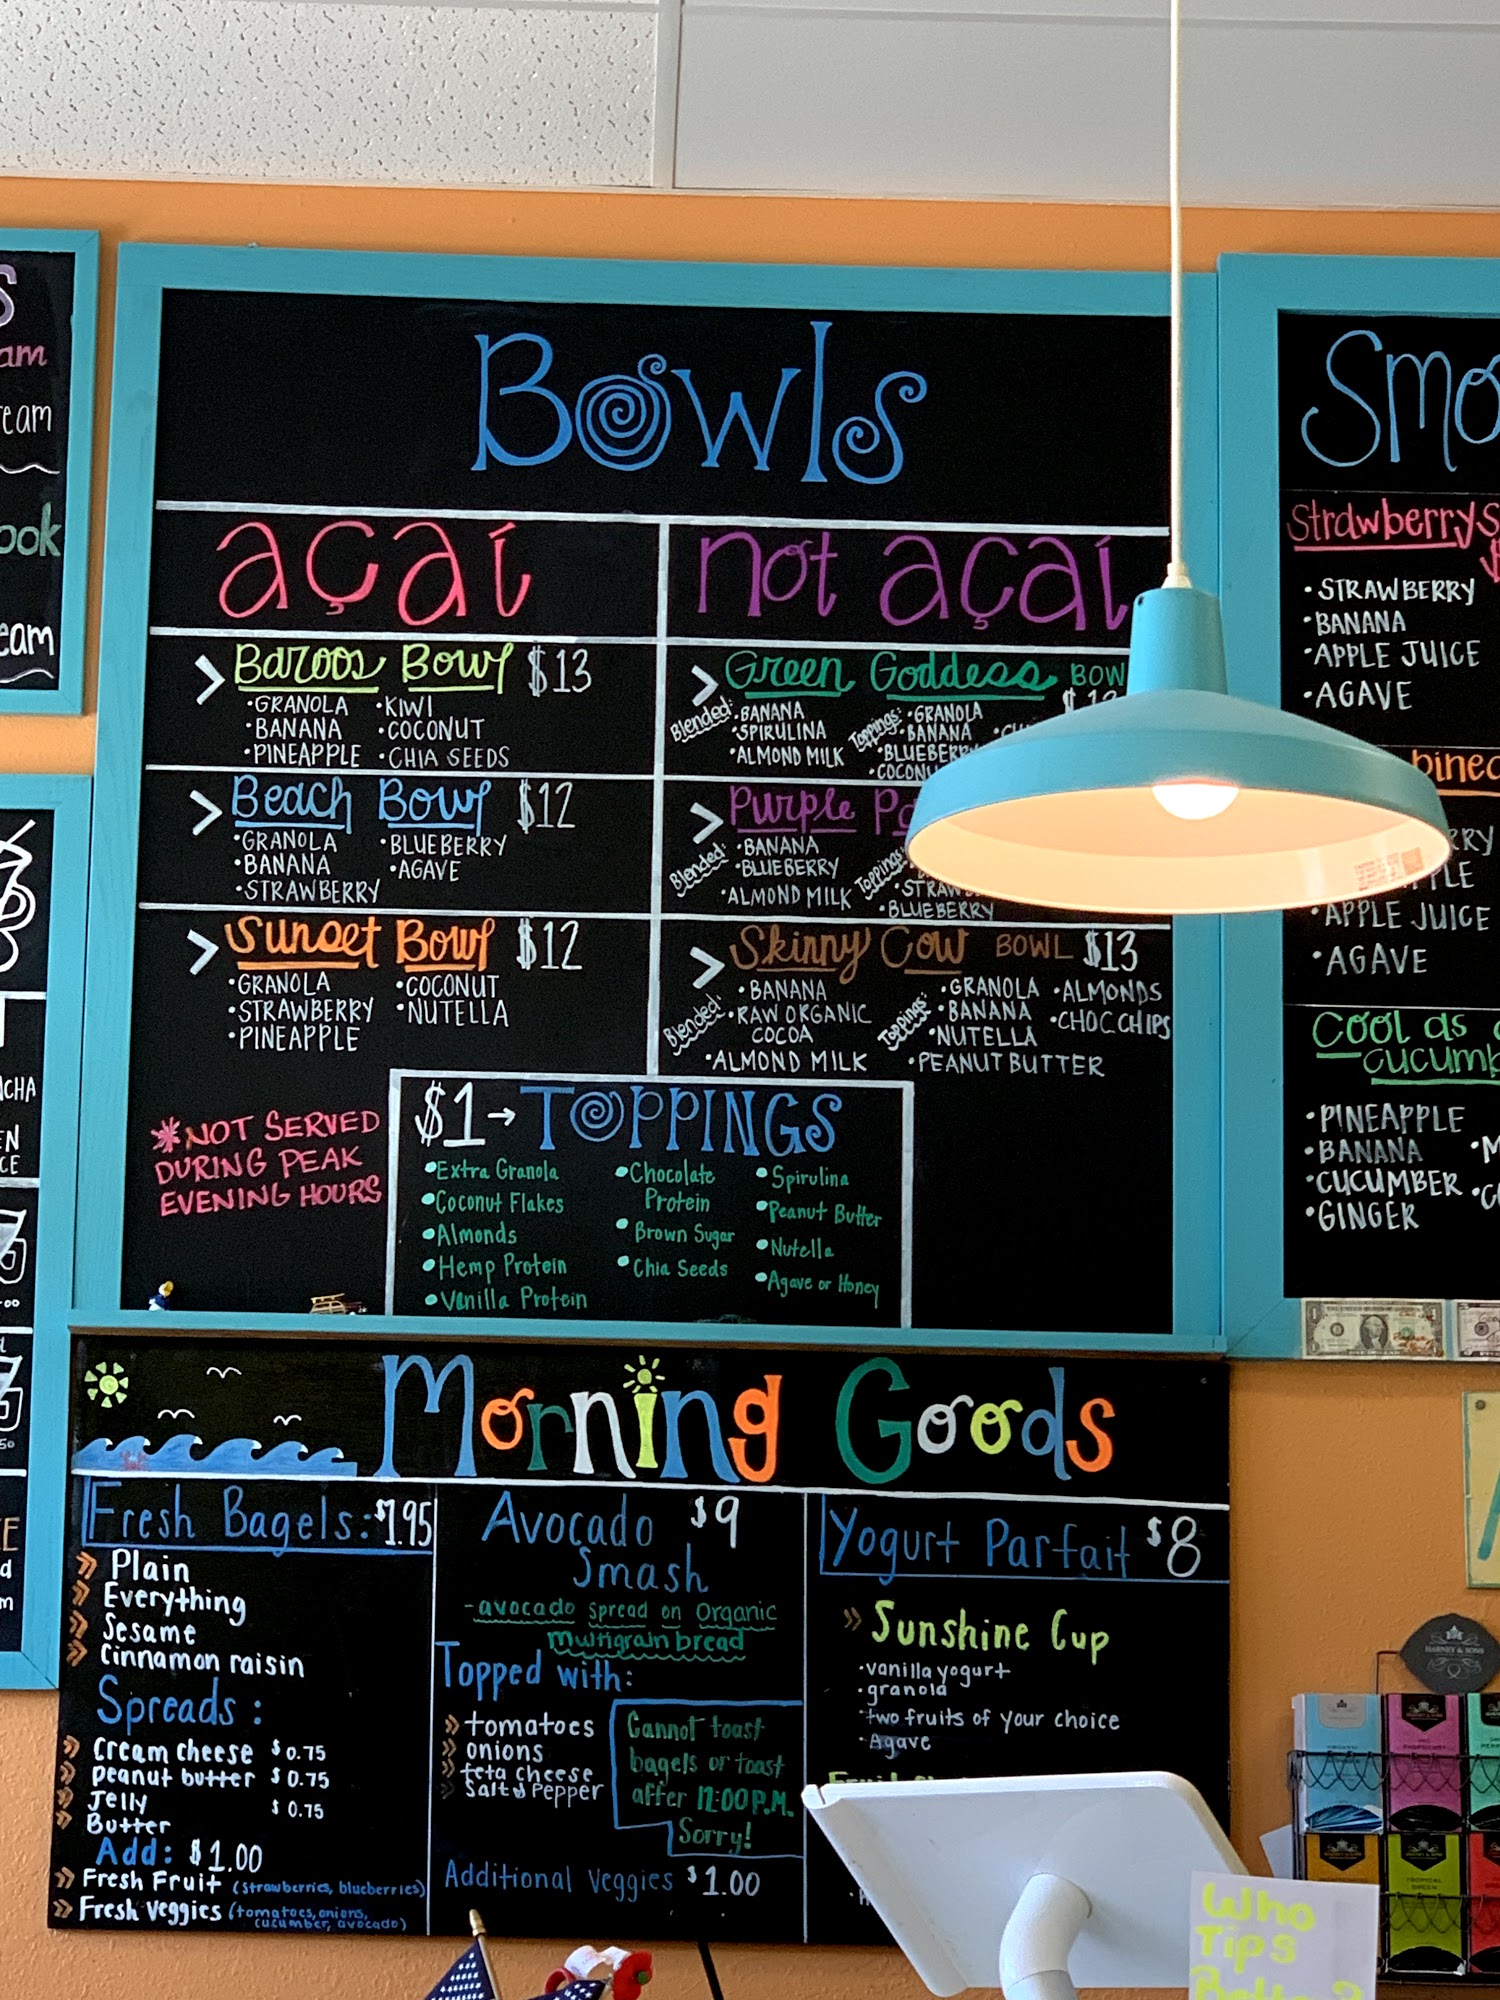 Bowls
açaí
Baroos Bowl $13
•GRANOLA •KIWI
•BANANA •COCONUT
•PINEAPPLE •CHIA SEEDS
Beach Bowl $12
•GRANOLA •BLUEBERRY
•BANANA •AGAVE
•STRAWBERRY
Sunset Bowl $12
•GRANOLA •COCONUT
•STRAWBERRY •NUTELLA
•PINEAPPLE
not açaí
Green Goddess BOW
Blended:
•BANANA
•SPIRULINA
•ALMOND MILK
Toppings:
•GRANOLA
•BANANA
•BLUEBERRY
•COCONU
Purple Pa
Blended:
•BANANA
•BLUEBERRY
•ALMOND MILK
Toppings:
•STRAW
•BLUEBERRY
Skinny Cow BOWL $13
Blended:
•BANANA
•RAW ORGANIC
COCOA
•ALMOND MILK
Toppings:
•GRANOLA •ALMONDS
•BANANA •CHOC CHIPS
•NUTELLA
•PEANUT BUTTER
*NOT SERVED
DURING PEAK
EVENING HOURS
$1→ TOPPINGS
•Extra Granola
•Coconut Flakes
•Almonds
•Hemp Protein
•Vanilla Protein
•Chocolate
Protein
•Brown Sugar
•Chia Seeds
•Spirulina
•Peanut Butter
•Nutella
•Agave or Honey
Morning Goods
Fresh Bagels: $1.95
Plain
Everything
Sesame
Cinnamon raisin
Spreads:
Cream cheese $0.75
Peanut butter $0.75
Jelly $0.75
Butter
Add: $1.00
Fresh Fruit (strawberries, blueberries)
Fresh Veggies (tomatoes, onions,
cucumber, avocado)
Avocado $9
Smash
-avocado spread on Organic
multigrain bread
Topped with:
tomatoes
onions
feta cheese
Salt & Pepper
Cannot toast
bagels or toast
after 12:00 P.M.
Sorry!
Additional Veggies $1.00
Yogurt Parfait $8
Sunshine Cup
•vanilla yogurt
•granola
•two fruits of your choice
•Agave
Smo
Strawberry
•STRAWBERRY
•BANANA
•APPLE JUICE
•AGAVE
pinea
•APPLE JUICE
•AGAVE
Cool as
cucumb
•PINEAPPLE
•BANANA
•CUCUMBER
•GINGER
am
eam
ook
eam
HARNEY & SONS
Who
Tips
Better?